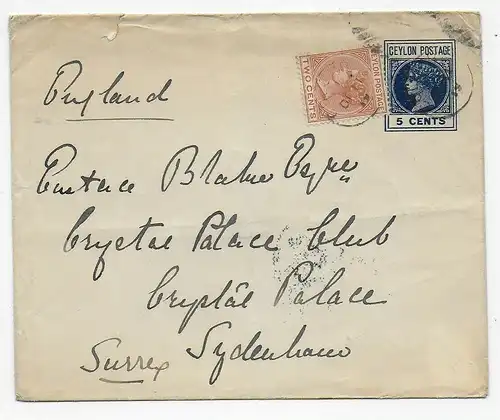 CEYLON POSTAGE
5 CENTS
CEYLON POSTAGE
TWO CENTS
England
Eustace Blake Esqre
Crystal Palace Club
Crystal Palace
Sydenham
Surrey